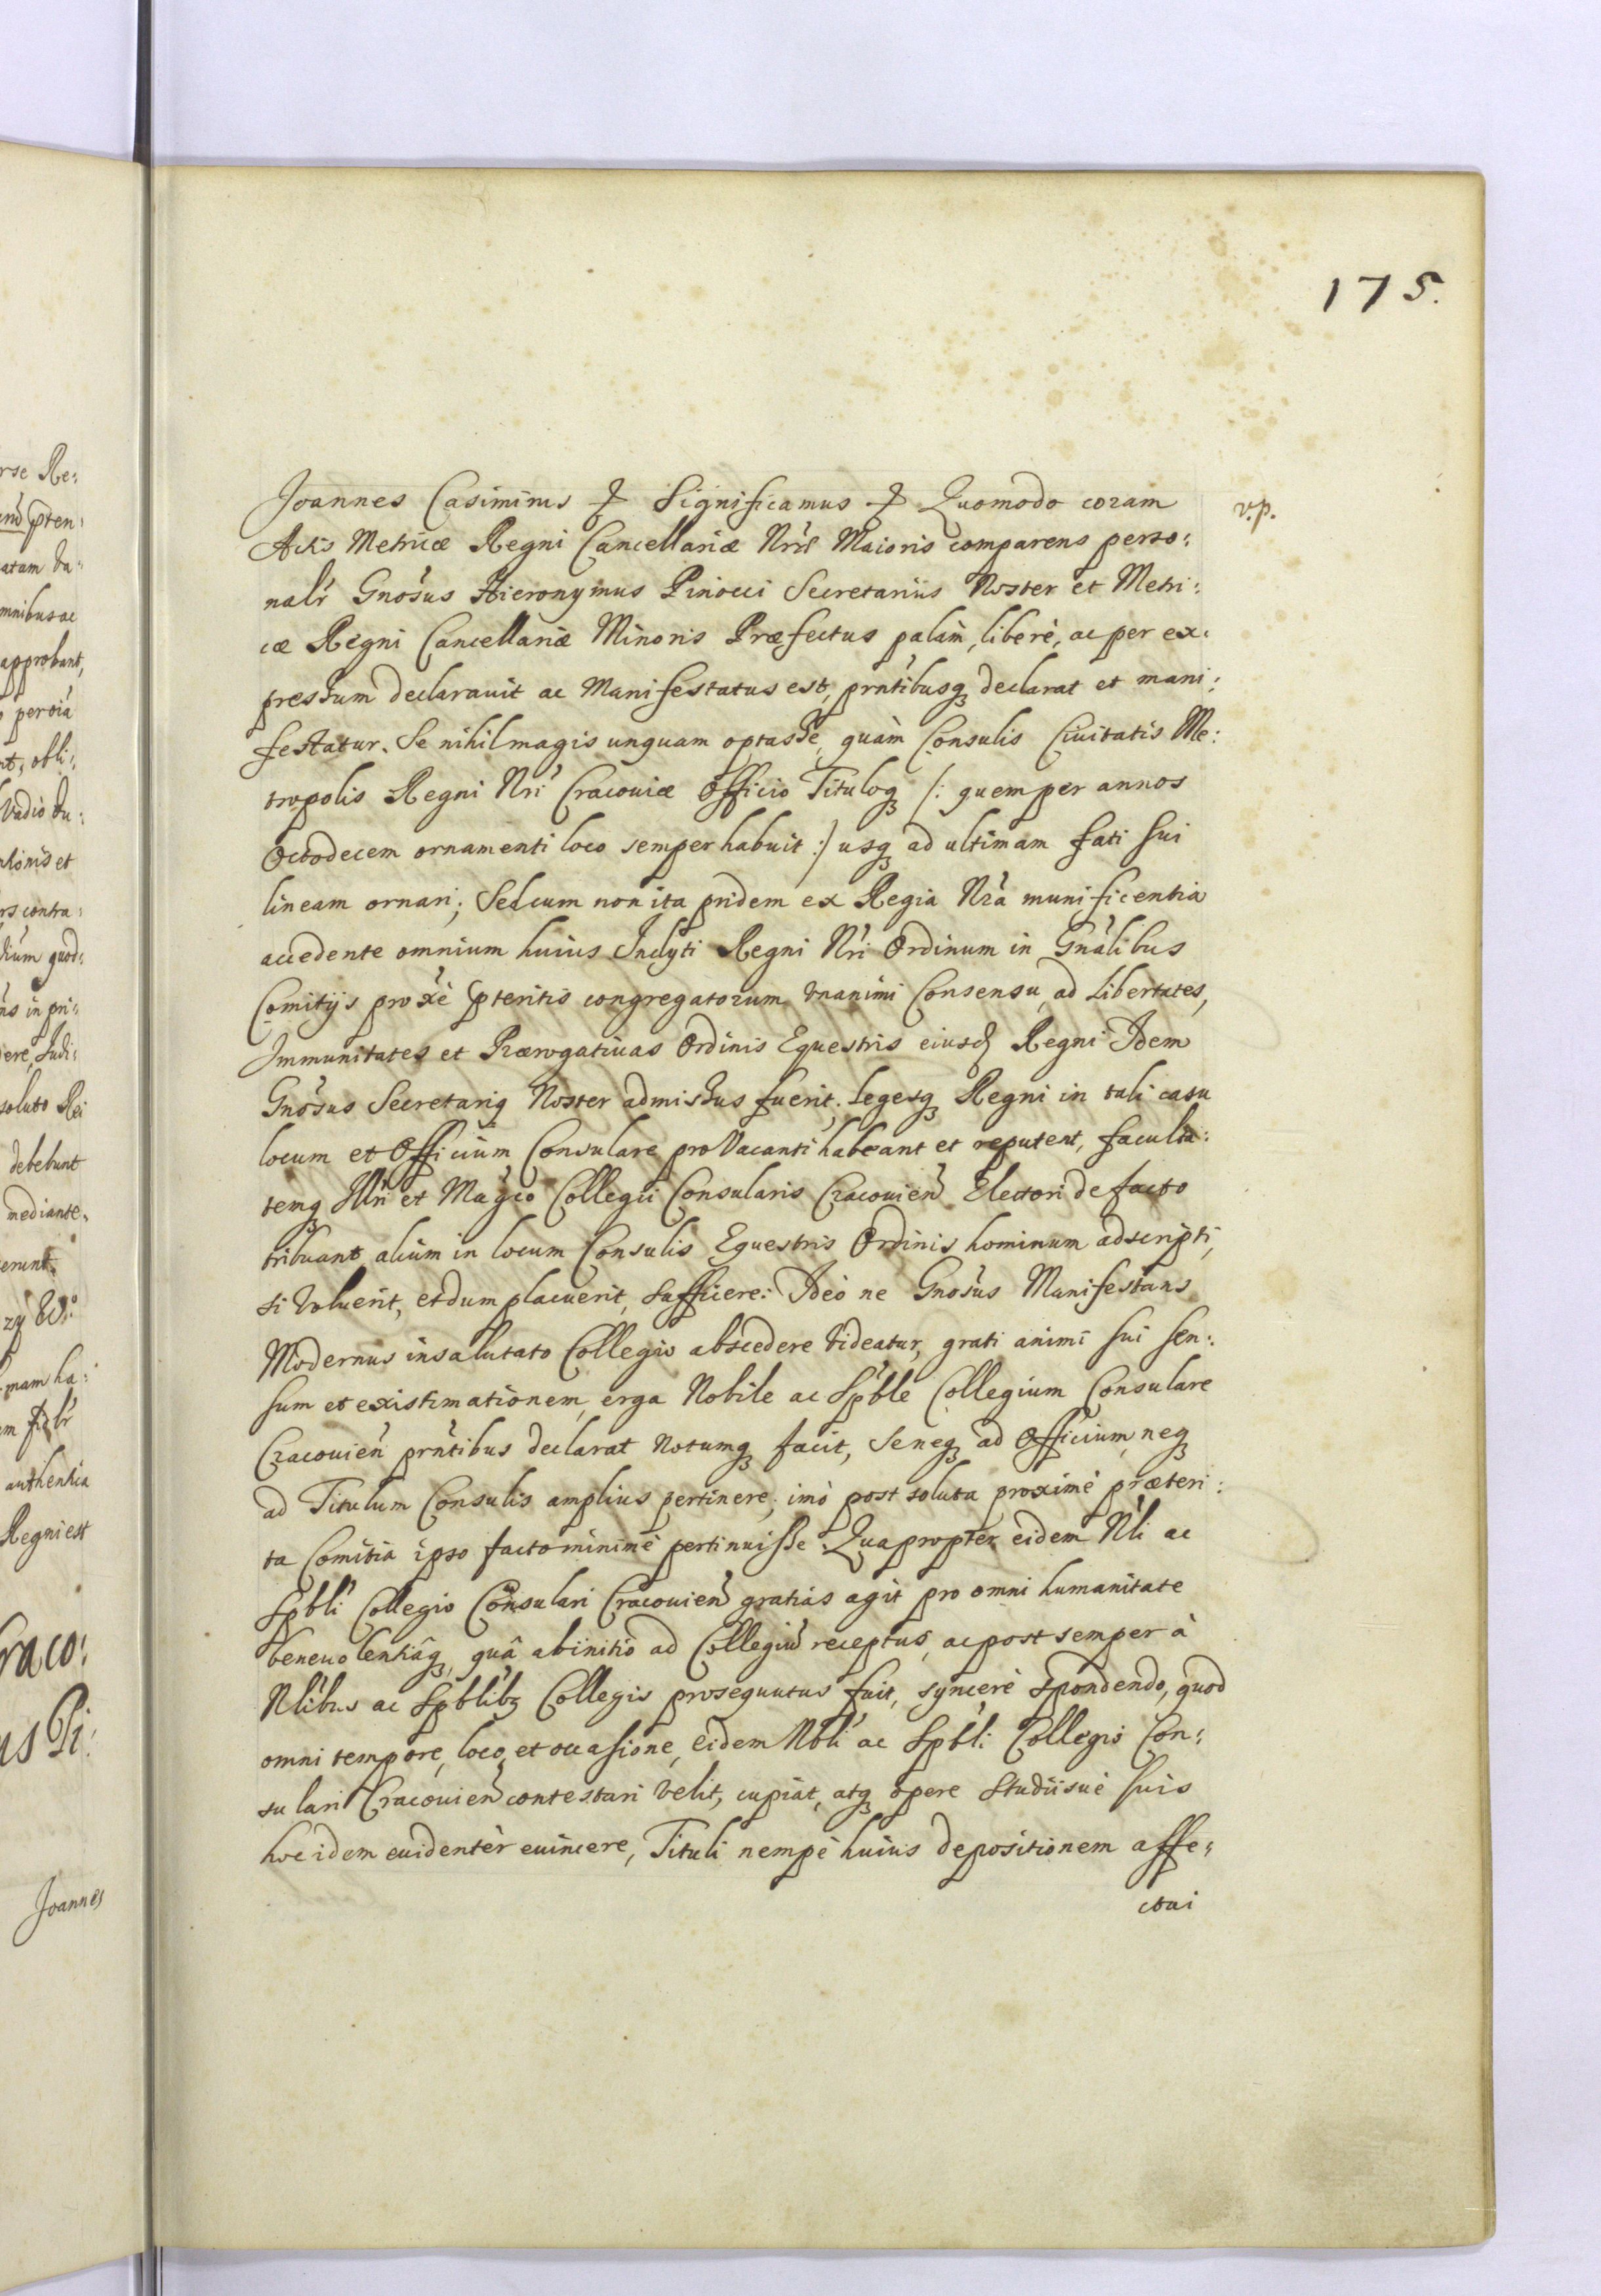 175.
v.p.
Joannes Casimirus & Significamus & Quomodo coram
Actis Metricæ Regni Cancellariæ Nrãe Maioris comparens perso:
nalr Gnosus Hieronymus Pinocci Secretarius Noster et Metri:
cæ Regni Cancellariæ Minoris Præfectus palàm, liberè, ac per ex:
pressum declarauit ac Manifestatus est, prntibusq declarat et mani:
festatur. Se nihil magis unquam optasse, quàm Consulis Ciuitatis Me:
tropolis Regni Nri Cracouiæ Officio Tituloq /: quem per annos
Octodecem ornamenti loco semper habuit :/ usq ad ultimam fati sui
lineam ornari; Sed cum non ita pridem ex Regia Nra munificentia
accedente omnium huius Inclyti Regni Nri Ordinum in Gnalibus
Comitijs proxè pteritis congregatorum vnanimi Consensu, ad Libertates,
Immunitates et Prærogatiuas Ordinis Equestris eiusd Regni Idem
Gnosus Secretariq Noster admissus fuerit, Legesq Regni in tali casu
locum et Officium Consulare pro Vacanti habeant et reputent, faculta:
temq Illri et Magco Collegii Consularis Cracouien Electori de facto
tribuant alium in locum Consulis Equestris Ordinis hominum adscripti,
si Voluerit, et dum placuerit, sufficere: Ideò ne Gnosus Manifestans
Modernus insalutato Collegio abscedere Videatur, grati animi sui sen:
sum et existimationem, erga Nobile ac Spble Collegium Consulare
Cracouien prntibus declarat Notumq facit, Se neq ad Officium, neq
ad Titulum Consulis amplius pertinere; imò post soluta proximè præteri:
ta Comitia ipso facto minimè pertinuisse. Quapropter eidem Nli ac
Spbli Collegio Consulari Cracouien gratias agit pro omni humanitate
beneuolentiâq, quâ ab initio ad Collegiũ receptus, ac post semper à
Nlibus ac Spblibq Collegis prosequutus fuit, syncerè Spondendo, quod
omni tempore, loco, et occasione, eidem Nbli ac Spbli Collegio Con:
sulari Cracouien contestari velit, cupiat, atq opere Studiisuè suis
hoc idem euidentèr euincere, Tituli nempè huius depositionem affe:
ctui
rse Re:
pten:
atam Va:
mnibus ac
approbant,
per viâ
nt, obli:
Vadio
et
rs contra:
dium quod:
ns in pri:
dere, Iudi:
soluto Rei
debebunt
mediante,
erunt
zy
mam ha:
authentica
Regni est
raco:
us Pi:
Joannes